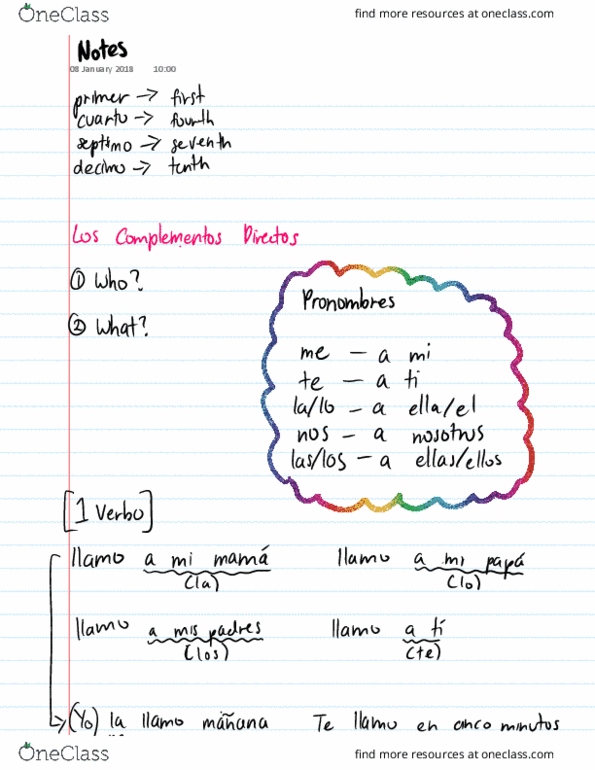 OneClass find more resources at oneclass.com
Notes
08 January 2018 10:00
primer → first
cuarto → fourth
septimo → seventh
decimo → tenth
Los Complementos Directos
① Who?
② What?
Pronombres
me — a mi
te — a ti
la/lo — a ella/el
nos — a nosotros
las/los — a ellas/ellos
[1 Verbo]
llamo a mi mamá llamo a mi papá
(la) (lo)
llamo a mis padres llamo a tí
(los) (te)
(Yo) la llamo mãnana Te llamo en cinco minutos
OneClass find more resources at oneclass.com